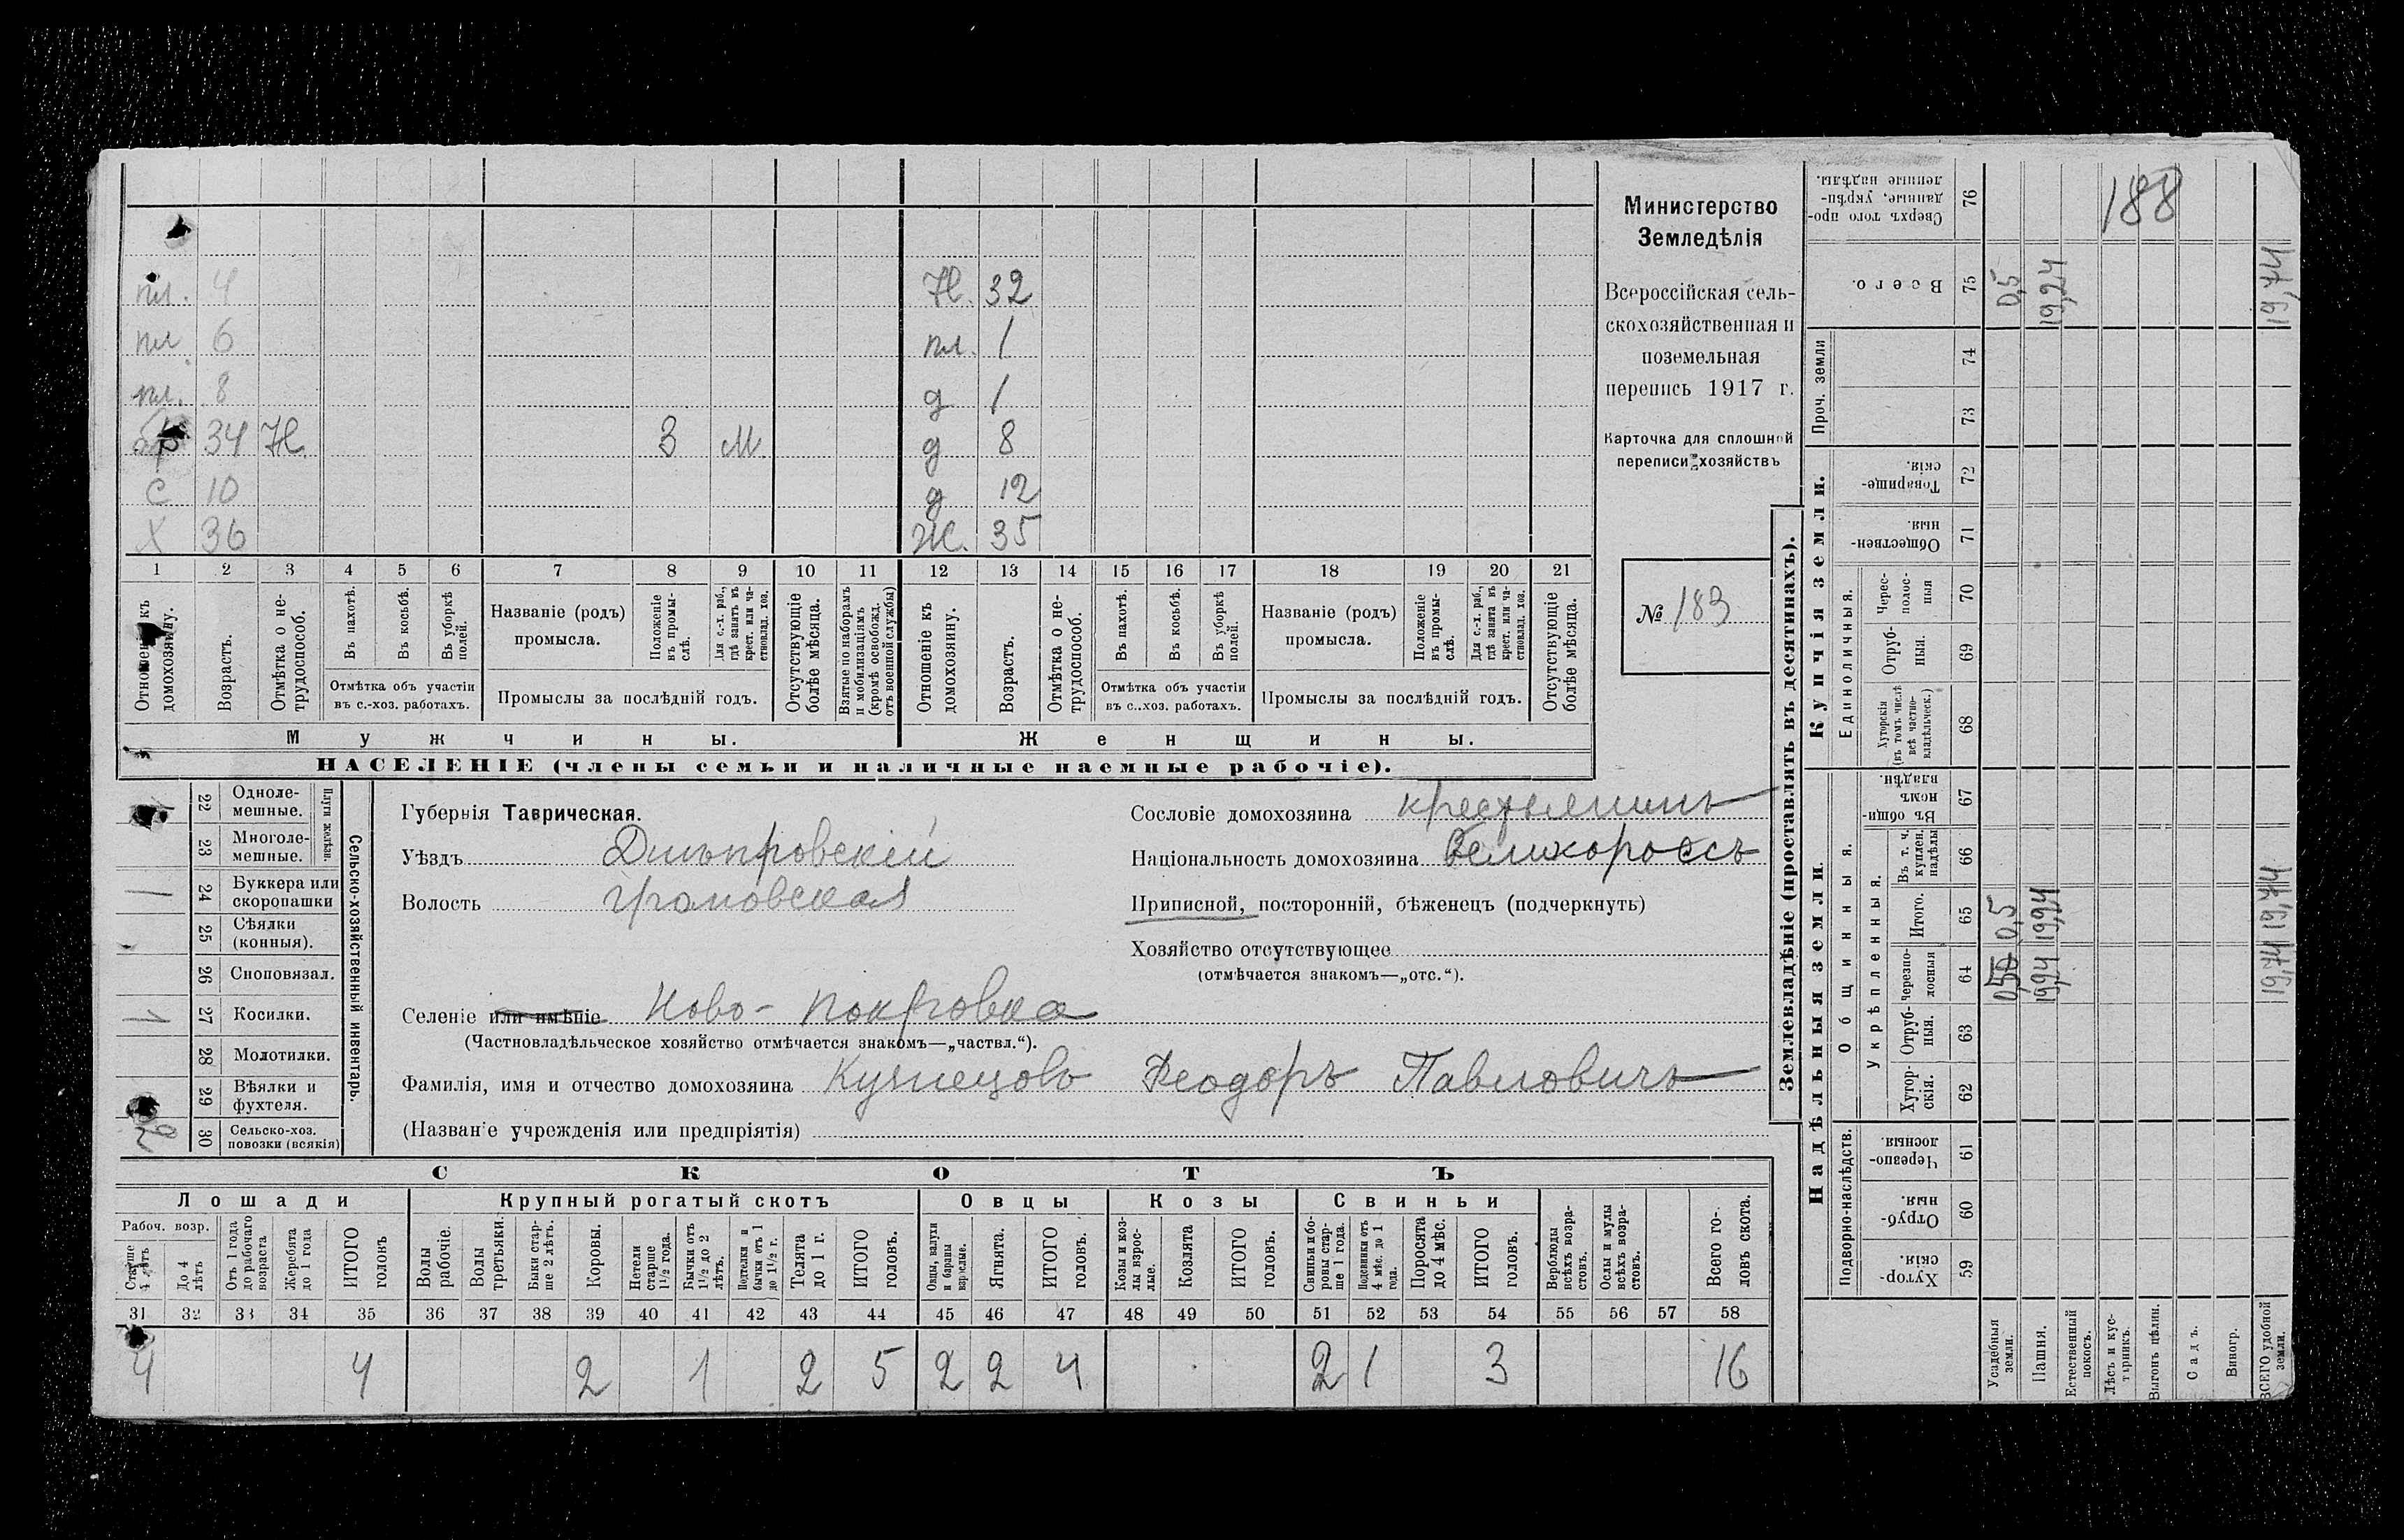 пл. 4 Н. 32
пл 6 пл. 1
пл. 8 д 1
бр 34 Н. З М д 8
с 10 д 12
Х 36 Ж. 35
1 2 3 4 5 6 7 8 9 10 11 12 13 14 15 16 17 18 19 20 21
Отношеніе къ домохозяину.
Возрастъ.
Отмѣтка о не-
трудоспособ.
Въ пахотѣ.
Въ косьбѣ.
Въ уборкѣ
полей.
Отмѣтка объ участіи
въ с.-хоз. работахъ.
Названіе (родъ)
промысла.
Положеніе
въ промы-
слѣ.
Для с.-х. раб.,
гдѣ занятъ въ
крест. или ча-
стновлад. хоз.
Промыслы за послѣдній годъ.
Отсутствующіе
болѣе мѣсяца.
Взятые по наборамъ
и мобилизаціямъ
(кромѣ освобожд.
отъ военной службы)
Отношеніе къ
домохозяину.
Возрастъ.
Отмѣтка о не-
трудоспособ.
Въ пахотѣ.
Въ косьбѣ.
Въ уборкѣ
полей.
Отмѣтка объ участіи
въ с..хоз. работахъ.
Названіе (родъ)
промысла.
Положеніе
въ промы-
слѣ.
Для с.-х. раб.,
гдѣ занята въ
крест. или ча-
стновлад. хоз.
Промыслы за послѣдній годъ.
Отсутствующіе
болѣе мѣсяца.
Мужчины. Женщины.
НАСЕЛЕНІЕ (члены семьи и наличные наемные рабочіе).
Министерство
Земледѣлія
Всероссійская сель-
скохозяйственная и
поземельная
перепись 1917 г.
Карточка для сплошной
переписи хозяйствъ
№ 183
22 Одноле-
мешные.
23 Многоле-
мешные.
Плуги желѣзн.
24 Буккера или
скоропашки
1
25 Сѣялки
(конныя).
26 Сноповязал.
27 Косилки.
1
28 Молотилки.
29 Вѣялки и
фухтеля.
30 Сельско-хоз.
повозки (всякія)
2
Сельско-хозяйственный инвентарь.
Губернія Таврическая.
Уѣздъ Днѣпровскій
Волость Громовская
Сословіе домохозяина крестьянинъ
Національность домохозяина Великороссъ
Приписной, посторонній, бѣженецъ (подчеркнуть)
Хозяйство отсутствующее
(отмѣчается знакомъ—„отс.“).
Селеніе или имѣніе Ново-Покровка
(Частновладѣльческое хозяйство отмѣчается знакомъ—„частвл.“).
Фамилія, имя и отчество домохозяина Кузнецовъ Феодоръ Павловичъ
(Названіе учрежденія или предпріятія)
СКОТЪ
Лошади Крупный рогатый скотъ Овцы Козы Свиньи
Рабоч. возр.
Старше
4 лѣтъ
До 4
лѣтъ
Отъ 1 года
до рабочаго
возраста
Жеребята
до 1 года
ИТОГО
головъ
Волы
рабочіе.
Волы
третьяки.
Быки стар-
ше 2 лѣтъ.
Коровы.
Нетели
старше
1½ года.
Бычки отъ
1½ до 2
лѣтъ.
Нетелки и
бычки отъ 1
до 1½ г.
Телята
до 1 г.
ИТОГО
головъ.
Овцы, валухи
и бараны
взрослые.
Ягнята.
ИТОГО
головъ.
Козы и коз-
лы взрос-
лые.
Козлята
ИТОГО
головъ.
Свиньи и бо-
ровы стар-
ше 1 года.
Подсвинки отъ
4 мѣс. до 1
года.
Поросята
до 4 мѣс.
ИТОГО
головъ.
Верблюды
всѣхъ возра-
стовъ.
Ослы и мулы
всѣхъ возра-
стовъ.
Всего го-
ловъ скота.
31 32 33 34 35 36 37 38 39 40 41 42 43 44 45 46 47 48 49 50 51 52 53 54 55 56 57 58
4 4 2 1 2 5 2 2 4 2 1 3 16
Землевладѣніе (проставлять въ десятинахъ).
Купчія земли.
Надѣльныя земли.
Проч. земли
Единоличныя.
Общинныя.
Укрѣпленныя.
Подворно-наслѣдств.
Сверхъ того про-
данные, укрѣп-
ленные надѣлы.
76
188
Всего.
75
0,5 19,24 19,74
74
73
Товарище-
скія.
72
Обществен-
ныя.
71
Черес-
полос-
ныя
70
Отруб-
ныя.
69
Хуторскія
(въ томъ числѣ
всѣ частно-
владѣльческ.)
68
Въ общин-
номъ
владѣн.
67
Въ т. ч.
куплен.
надѣлы
66
Итого.
65
0,5 19,24 19,74
Черезпо-
лосныя
64
0,50 19,24 19,74
Отруб-
ныя.
63
Хутор-
скія.
62
Черезпо-
лосныя.
61
Отруб-
ныя.
60
Хутор-
скія.
59
Усадебныя
земли.
Пашня.
Естественный
покосъ.
Лѣсъ и кус-
тарникъ.
Выгонъ цѣлин.
Садъ.
Виногр.
ВСЕГО удобной
земли.